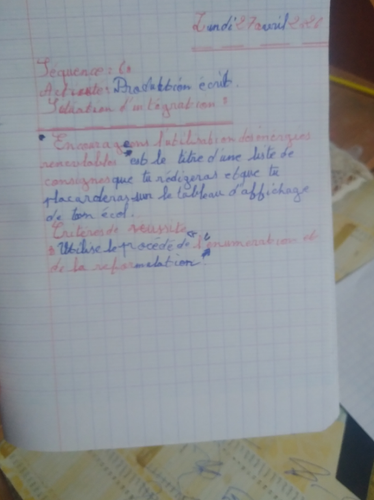 Lundi 27 avril 2020
Séquence:
Activité: Production écrit.
Situation d'intégration:
"Encourageons l'utilisation des énergies
renouvelables" est le titre d'une liste de
consignes que tu rédigeras et que tu
placarderas sur le tableau d'affichage
de ton écol.
Critères de réussite
Utilise le procédé de l'énumération et
de la reformulation.